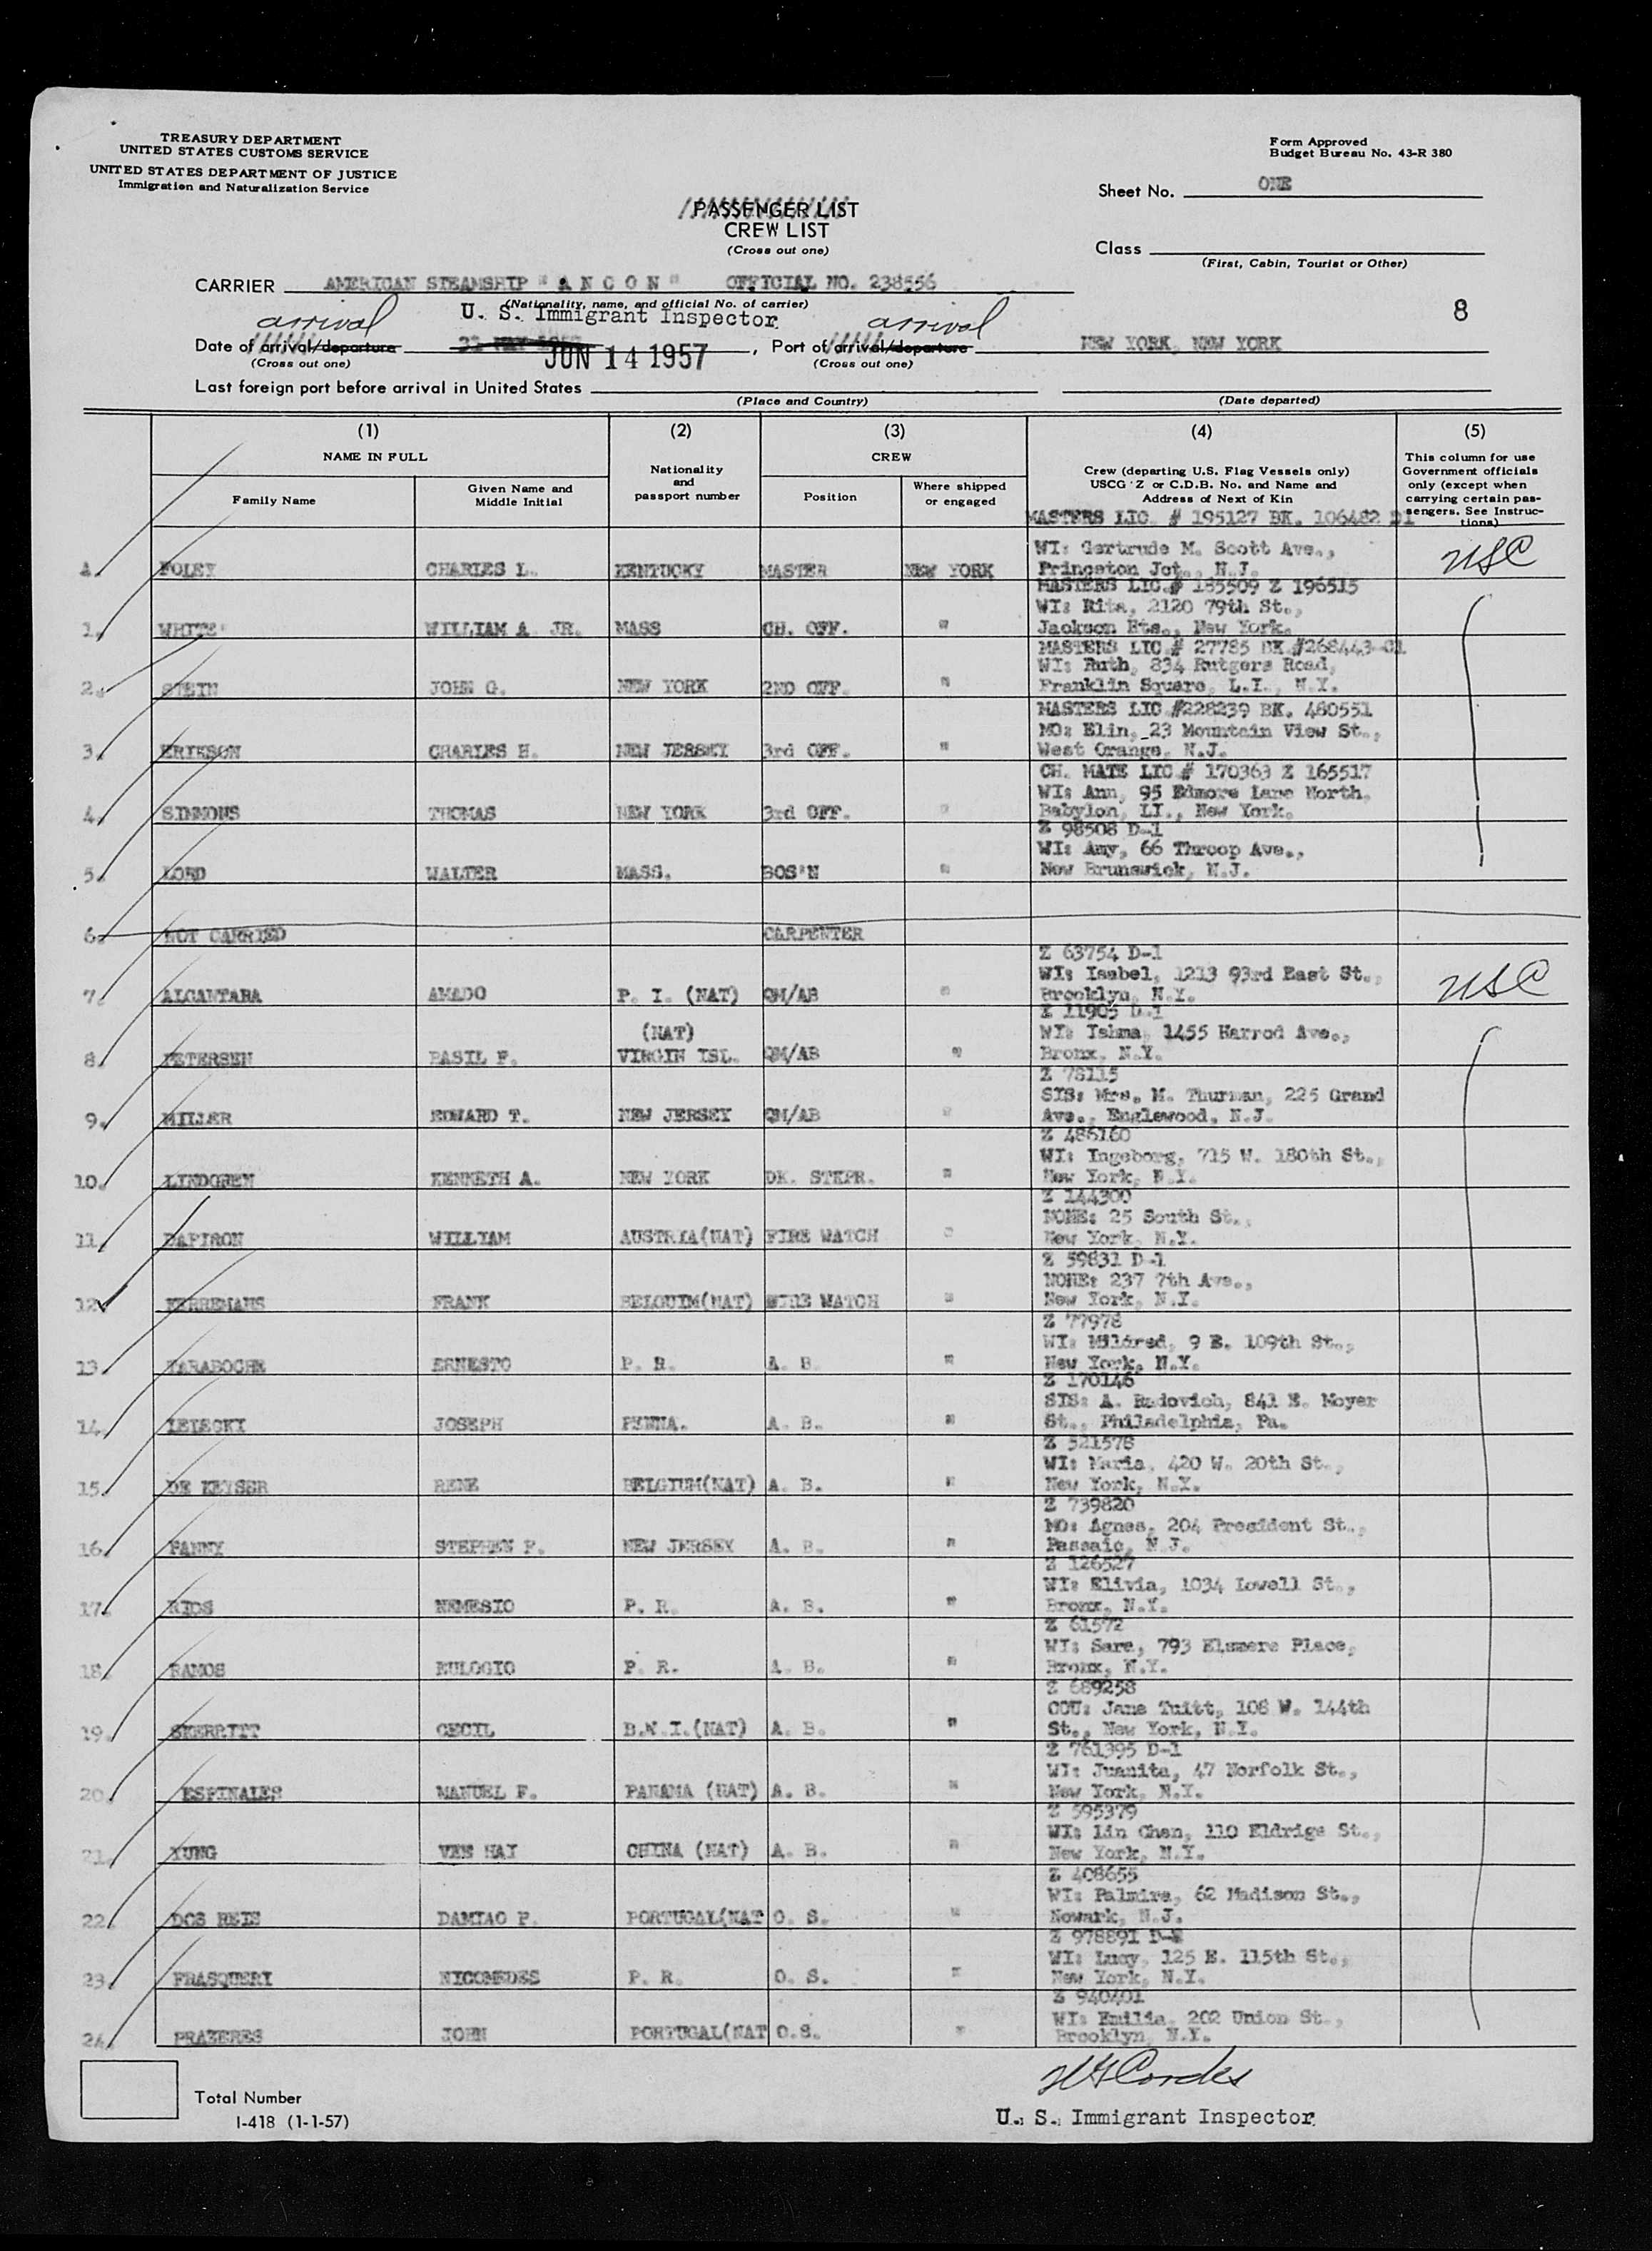 TREASURY DEPARTMENT
UNITED STATES CUSTOMS SERVICE
UNITED STATES DEPARTMENT OF JUSTICE
Immigration and Naturalization Service
Form Approved
Budget Bureau No. 43-R 380
Sheet No. ONE
PASSENGER LIST
CREW LIST
(Cross out one)
Class
(First, Cabin, Tourist or Other)
CARRIER AMERICAN STEAMSHIP "ANCON" OFFICIAL NO. 238556
(Nationality, name, and official No. of carrier)
U. S. Immigrant Inspector
8
arrival arrival
Date of arrival/departure JUN 14 1957, Port of arrival/departure NEW YORK, NEW YORK
(Cross out one) (Cross out one)
Last foreign port before arrival in United States
(Place and Country) (Date departed)
(1) (2) (3) (4) (5)
NAME IN FULL
Nationality and passport number
CREW
Crew (departing U.S. Flag Vessels only) USCG Z or C.D.B. No. and Name and Address of Next of Kin
This column for use Government officials only (except when carrying certain passengers. See Instructions)
Family Name
Given Name and Middle Initial
Position
Where shipped or engaged
MASTERS LIC. # 195127 BK. 106482 D1
WI: Gertrude M. Scott Ave.,
FOLEY CHARLES L. KENTUCKY MASTER NEW YORK Princeton Jct., N.J. USC
MASTERS LIC.# 185509 Z 196515
WI: Rita, 2120 79th St.,
1. WHITE WILLIAM A JR. MASS CH. OFF. " Jackson Hts., New York.
MASTERS LIC.# 27785 BK #268443-C1
WI: Ruth, 834 Rutgers Road,
2. STEIN JOHN G. NEW YORK 2ND OFF. " Franklin Square, L.I., N.Y.
MASTERS LIC #228239 BK. 480551
MO: Elin, 23 Mountain View St.,
3. ERIKSON CHARLES H. NEW JERSEY 3rd OFF. " West Orange, N.J.
CH. MATE LIC.# 170363 Z 165517
WI: Ann, 95 Edmore Lane North,
4. SIMMONS THOMAS NEW YORK 3rd OFF. " Babylon, LI., New York.
Z 98508 D-1
WI: Amy, 66 Throop Ave.,
5. LORD WALTER MASS. BOS'N " New Brunswick, N.J.
6. NOT CARRIED CARPENTER
Z 63754 D-1
WI: Isabel, 1213 93rd East St.,
7. ALCANTARA AMADO P. I. (NAT) QM/AB " Brooklyn, N.Y. USC
Z 11905 D-1
(NAT) WI: Telma, 1455 Harrod Ave.,
8. PETERSEN BASIL F. VIRGIN ISL. QM/AB " Bronx, N.Y.
Z 78115
SIS: Mrs. M. Thurman, 225 Grand
9. MILLER EDWARD T. NEW JERSEY QM/AB " Ave., Englewood, N.J.
Z 486160
WI: Ingeborg, 715 W. 180th St.,
10. LINDGREN KENNETH A. NEW YORK DK. STKPR. " New York, N.Y.
Z 144300
NONE: 25 South St.,
11. DAPIRON WILLIAM AUSTRIA(NAT) FIRE WATCH " New York, N.Y.
Z 59831 D-1
NONE: 237 7th Ave.,
12. KERREMANS FRANK BELGUIM(NAT) FIRE WATCH " New York, N.Y.
Z 77978
WI: Mildred, 9 E. 109th St.,
13. TARABOCHE ERNESTO P. R. A. B. " New York, N.Y.
Z 170146
SIS: A. Radovich, 841 E. Moyer
14. LELECKI JOSEPH PENNA. A. B. " St., Philadelphia, Pa.
Z 521578
WI: Maria, 420 W. 20th St.,
15. DE KEYSER RENE BELGIUM(NAT) A. B. " New York, N.Y.
Z 739820
MO: Agnes, 204 President St.,
16. PANNY STEPHEN P. NEW JERSEY A. B. " Passaic, N.J.
Z 126527
WI: Elivia, 1034 Lowell St.,
17. RIOS NEMESIO P. R. A. B. " Bronx, N.Y.
Z 61572
WI: Sara, 793 Elsmere Place,
18. RAMOS EULOGIO P. R. A. B. " Bronx, N.Y.
Z 689258
COU: Jane Tuitt, 108 W. 144th
19. SKERRITT CECIL B.W.I.(NAT) A. B. " St., New York, N.Y.
Z 761395 D-1
WI: Juanita, 47 Norfolk St.,
20. ESPINALES MANUEL F. PANAMA (NAT) A. B. " New York, N.Y.
Z 595379
WI: Lin Chan, 110 Eldrige St.,
21. YUNG VEN HAI CHINA (NAT) A. B. " New York, N.Y.
Z 408655
WI: Palmira, 62 Madison St.,
22. DOS REIS DAMIAO P. PORTUGAL(NAT O. S. " Newark, N.J.
Z 978891
WI: Lucy, 125 E. 115th St.,
23. FRASQUERI NICOMEDES P. R. O. S. " New York, N.Y.
Z 940401
WI: Emilia, 202 Union St.,
24. PRAZERES JOHN PORTUGAL(NAT O.S. " Brooklyn, N.Y.
Total Number
I-418 (1-1-57)
U. S. Immigrant Inspector